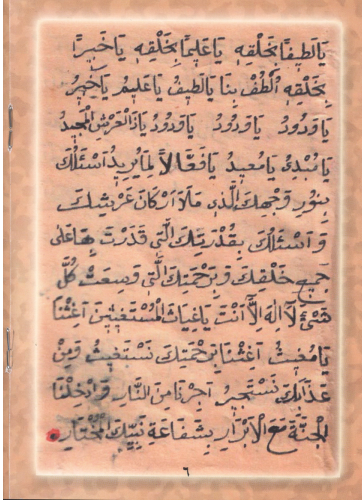 يَالَطِيفًا بِخَلْقِهِ يَاعَلِيمًا بِخَلْقِهِ يَاخَبِيرًا
بِخَلْقِهِ اُلْطُفْ بِنَا يَالَطِيفُ يَاعَلِيمُ يَاخَبِيرُ
يَاوَدُودُ يَاوَدُودُ يَاوَدُودُ يَاذَالْعَرْشِ الْمَجِيدُ
يَامُبْدِئُ يَامُعِيدُ يَافَعَّالاً لِمَايُرِيدُ اَسْئَلُكَ
بِنُورِ وَجْهِكَ الَّذِي مَلَاَ اَرْكَانَ عَرْشِكَ
وَاَسْئَلُكَ بِقُدْرَتِكَ الَّتِي قَدَرْتَ بِهَا عَلَى
جَمِيعِ خَلْقِكَ وَبِرَحْمَتِكَ الَّتِي وَسِعَتْ كُلَّ
شَيْءٍ لَآاِلٰهَ اِلَّآاَنْتَ يَاغِيَاثَ الْمُسْتَغِيثِينَ اَغِثْنَا
يَامُغِيثُ اَغِثْنَا بِرَحْمَتِكَ نَسْتَغِيثُ وَمِنْ
عَذَابِكَ نَسْتَجِيرُ اَجِرْنَا مِنَ النَّارِ وَاَدْخِلْنَا
الْجَنَّةَ مَعَ الْاَبْرَارِ بِشَفَاعَةِ نَبِيِّكَ الْمُخْتَارِ
٦